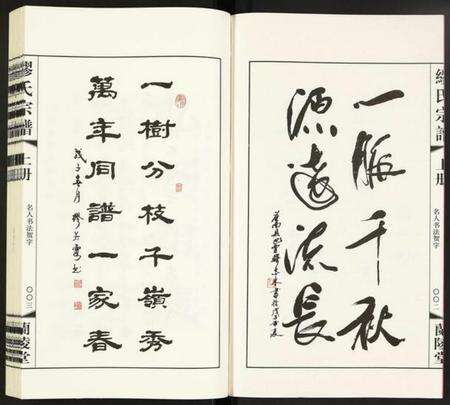 繆氏宗譜 上册 名人书法贺字 〇〇二 蘭陵堂
一脈千秋
源遠流長
一樹分枝千嶺秀
萬年同譜一家春
戊子春月
繆氏宗譜 上册 名人书法贺字 〇〇三 蘭陵堂